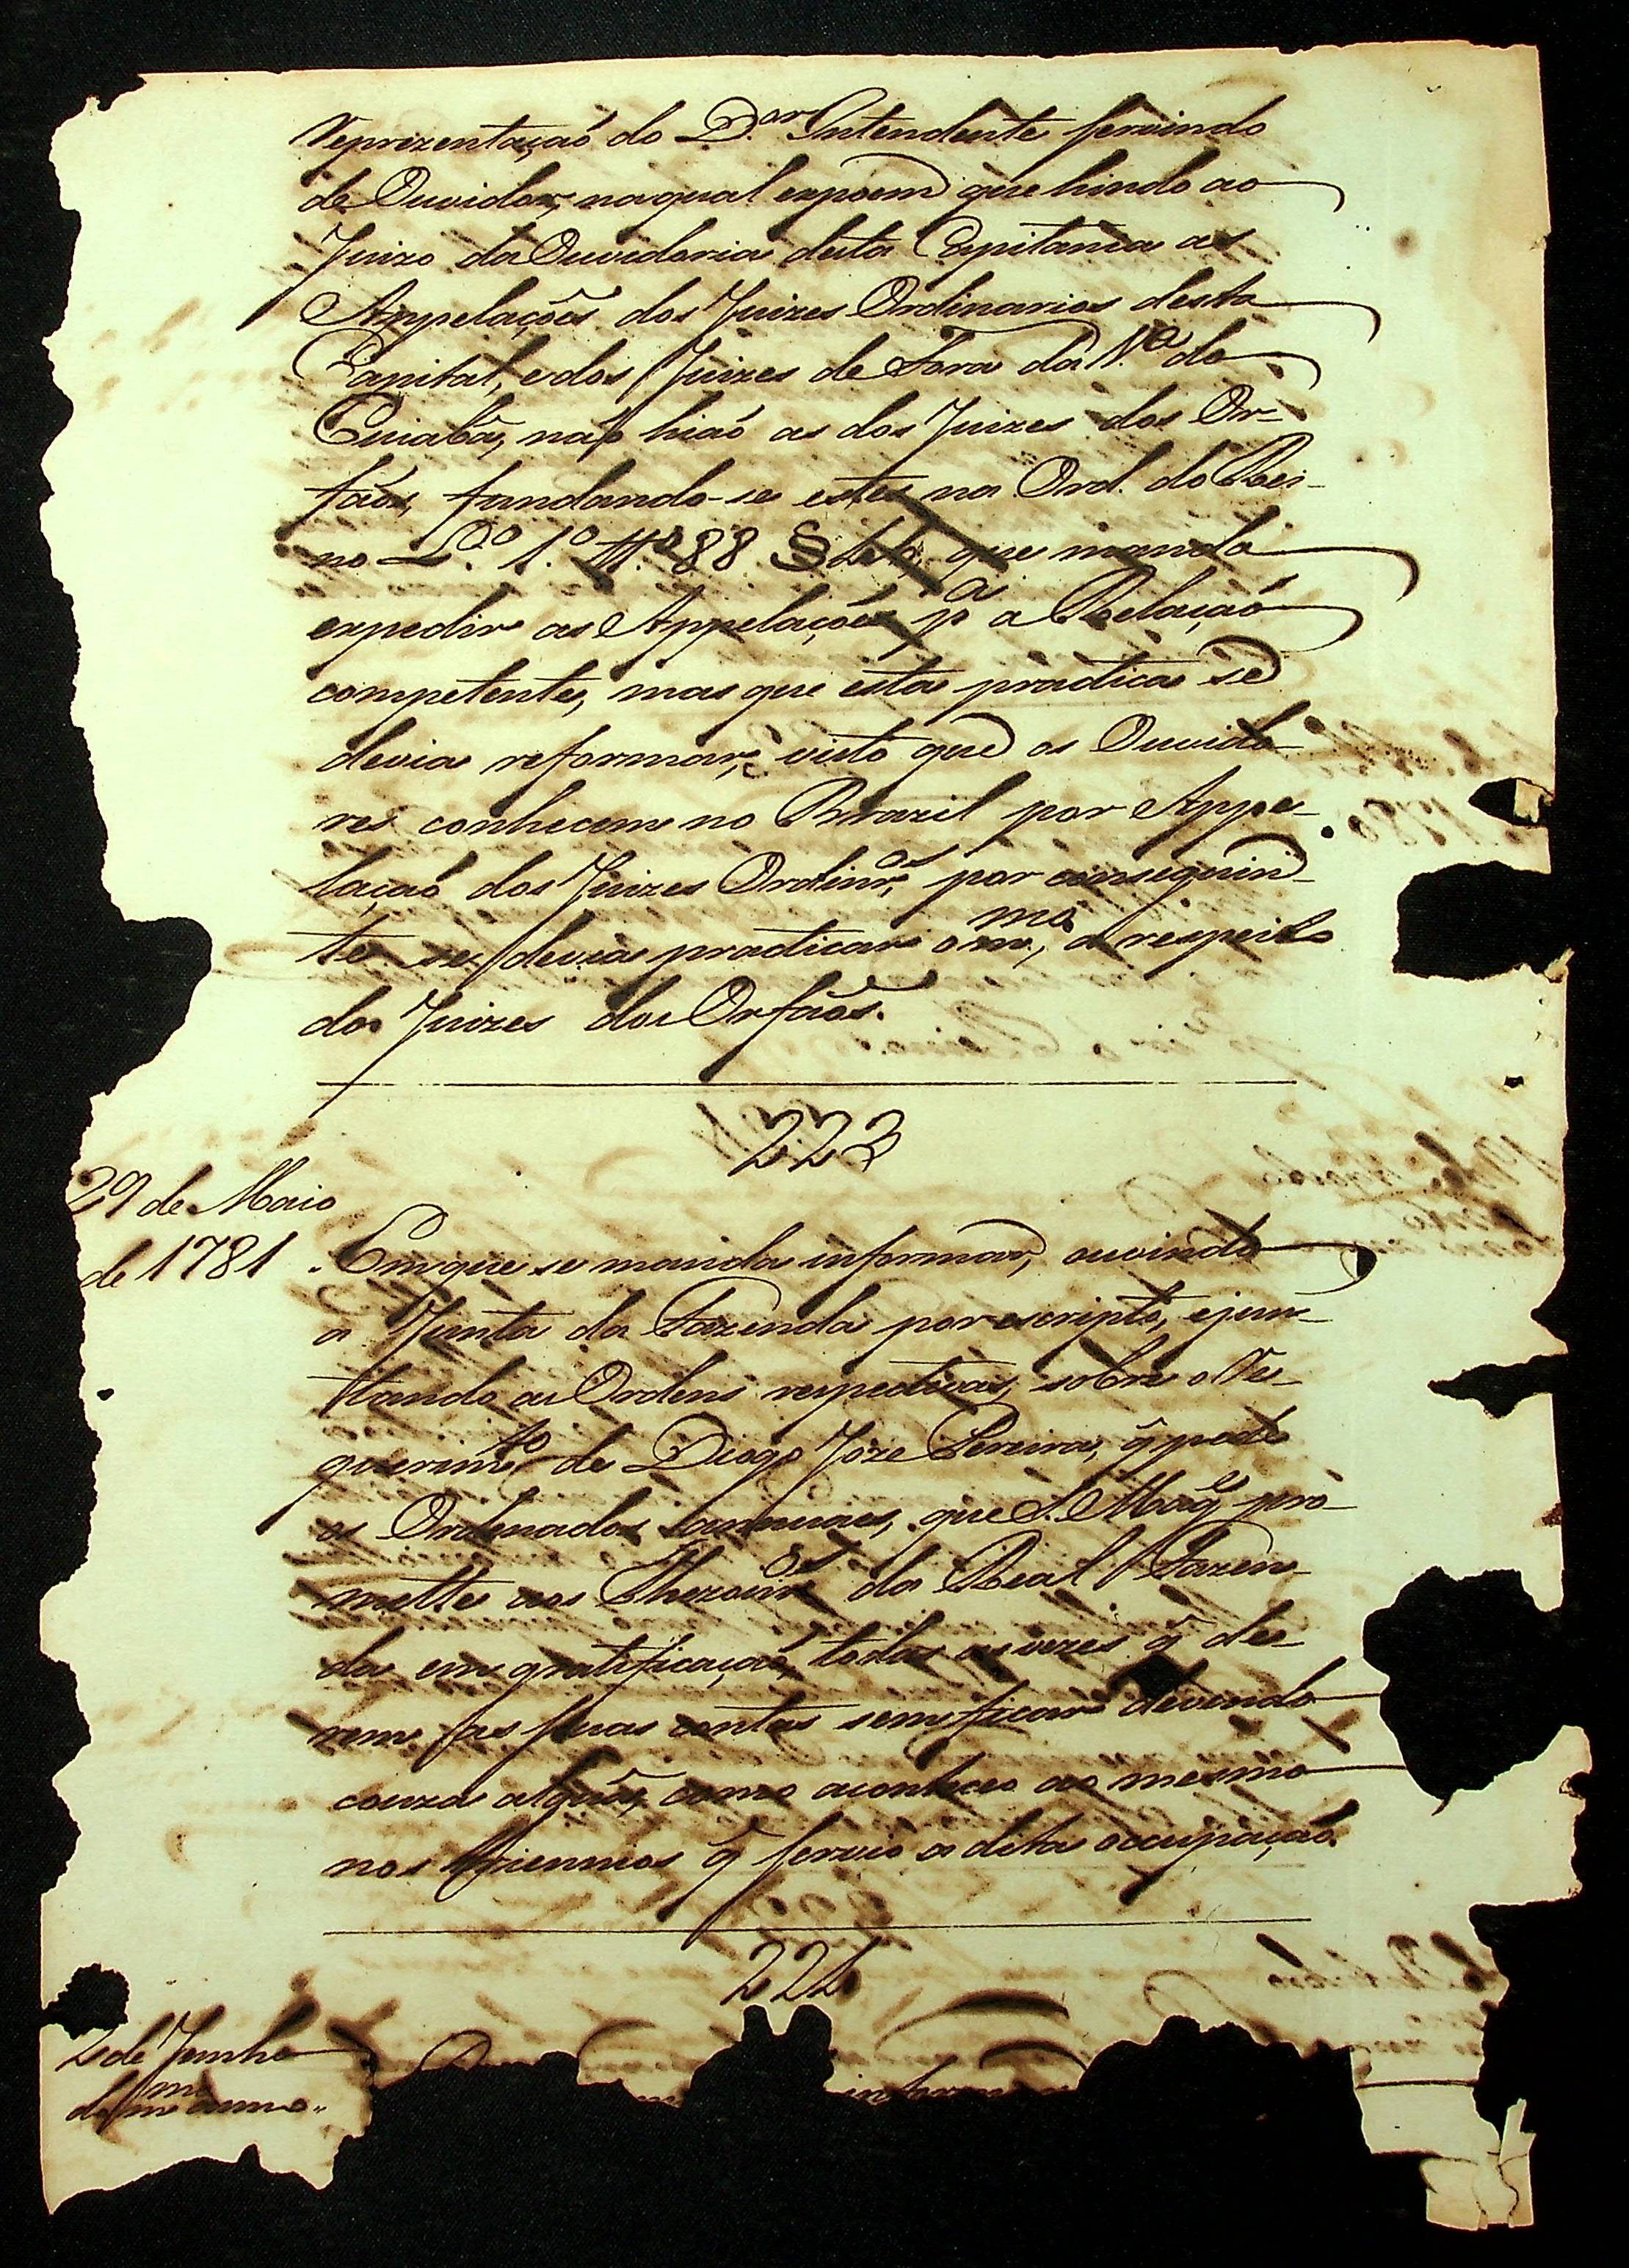 Reprezentaçaõ do D.or Intendente servindo
de Ouvidor, na qual expoem que hindo ao
Juizo da Ouvidoria desta Capitania as
Appelaçoẽs dos Juizes Ordinarios desta
Capital, e dos Juizes de Fora da V.a do
Cuiabá, naõ hiaõ as dos Juizes dos Or-
faõs, fundando-se estes na Ord. do Rei-
no L.o 1.o tt.o 88 § que manda
expedir as Appelaçoẽs p.a a Relaçaõ
competente, mas que esta practica se
devia reformar, visto que os Ouvido-
res conhecem no Brazil por Appe-
laçaõ dos Juizes Ordinr.os, por conseguin-
te se devia practicar o m.mo, a respeito
dos Juizes dos Orfaõs.
223
29 de Maio
de 1781
Em que se manda informar, ouvindo
a Junta da Fazenda por escripto, e jun-
tando as Ordens respectivas, sobre o Re-
querim.to de Diogo Joze Pereira, q̃ pede
os Ordenados annuaes, que S. Mag.e pro-
mette aos Thezour.os da Real Fazen-
da em gratificaçaõ, todas as vezes q̃ de-
rem as suas contas sem ficar devendo
couza algũa, como aconteceo ao mesmo
nos triennios q̃ servio a dita occupaçaõ.
224
2 de Junho
do m.mo anno.